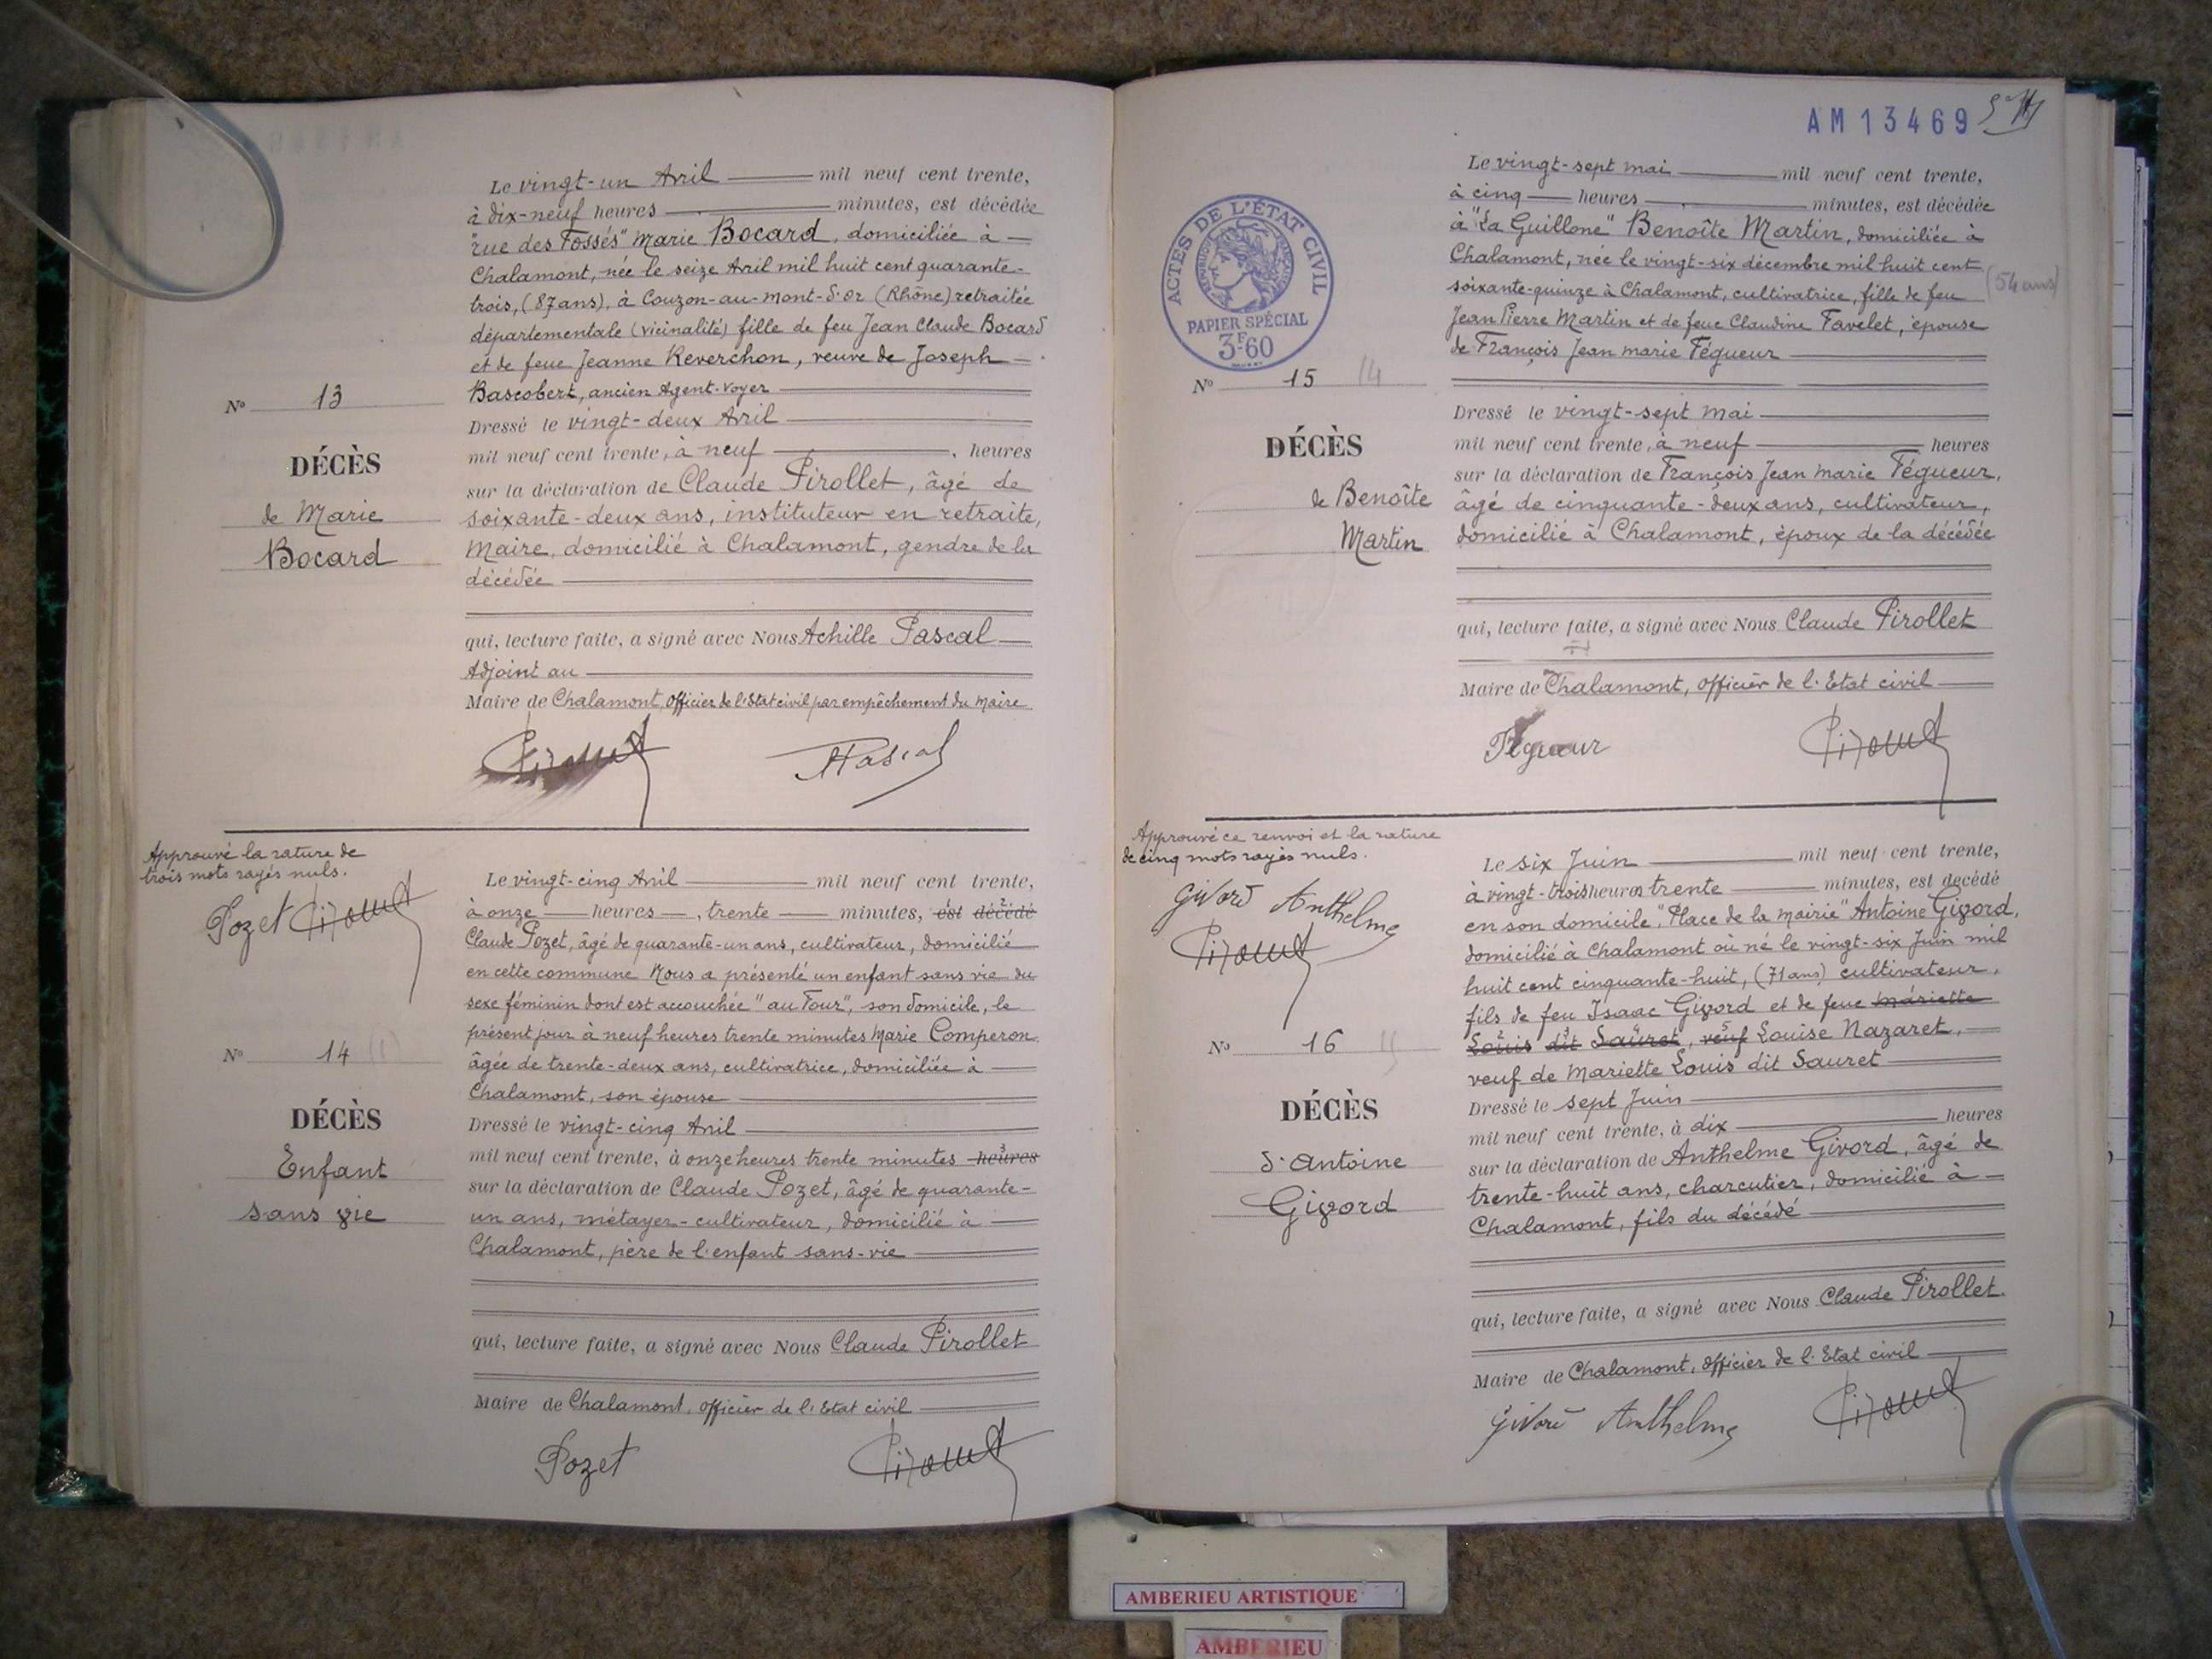 Le vingt-un Avril mil neuf cent trente,
à dix-neuf heures minutes, est décédée
"rue des Fossés" Marie Bocard, domiciliée à
Chalamont, née le seize Avril mil huit cent quarante-
trois, (87 ans), à Couzon-au-mont-d'or (Rhône) retraitée
départementale (vicinalité) fille de feu Jean Claude Bocard
et de feue Jeanne Reverchon, veuve de Joseph
Bascobert, ancien Agent-Voyer
Dressé le vingt-deux Avril
mil neuf cent trente, à neuf heures
sur la déclaration de Claude Pirollet, âgé de
soixante-deux ans, instituteur en retraite,
Maire, domicilié à Chalamont, gendre de la
décédée
qui, lecture faite, a signé avec Nous Achille Pascal
Adjoint au
Maire de Chalamont, officier de l'Etat civil par empêchement du Maire
Pirollet APascal
No 13
DÉCÈS
de Marie
Bocard
Approuvé la rature de
trois mots rayés nuls.
Pozet Pirollet
No 14
DÉCÈS
Enfant
sans vie
Le vingt-cinq Avril mil neuf cent trente,
à onze heures, trente minutes, est décédé
Claude Pozet, âgé de quarante-un ans, cultivateur, domicilié
en cette commune Nous a présenté un enfant sans vie du
sexe féminin dont est accouchée "au Four", son domicile, le
présent jour à neuf heures trente minutes Marie Comperon
âgée de trente-deux ans, cultivatrice, domiciliée à
Chalamont, son épouse
Dressé le vingt-cinq Avril
mil neuf cent trente, à onze heures trente minutes heures
sur la déclaration de Claude Pozet, âgé de quarante-
un ans, métayer-cultivateur, domicilié à
Chalamont, père de l'enfant sans-vie
qui, lecture faite, a signé avec Nous Claude Pirollet
Maire de Chalamont, officier de l'Etat civil
Pozet Pirollet
AM 13469
ACTES DE L'ÉTAT CIVIL
RÉPUBLIQUE FRANÇAISE
PAPIER SPÉCIAL
3F60
No 15 14
DÉCÈS
de Benoîte
Martin
Le vingt-sept mai mil neuf cent trente,
à cinq heures minutes, est décédée
à "La Guillone" Benoîte Martin, domiciliée à
Chalamont, née le vingt-six décembre mil huit cent
soixante-quinze à Chalamont, cultivatrice, fille de feu (54 ans)
Jean Pierre Martin et de feue Claudine Favelet, épouse
de François Jean Marie Fégueur
Dressé le vingt-sept mai
mil neuf cent trente, à neuf heures
sur la déclaration de François Jean Marie Fégueur,
âgé de cinquante-deux ans, cultivateur,
domicilié à Chalamont, époux de la décédée
qui, lecture faite, a signé avec Nous Claude Pirollet
Maire de Chalamont, officier de l'Etat civil
Fégueur Pirollet
Approuvé ce renvoi et la rature
de cinq mots rayés nuls.
Givord Anthelme
Pirollet
No 16
DÉCÈS
d'Antoine
Givord
Le six Juin mil neuf cent trente,
à vingt-trois heures trente minutes, est décédé
en son domicile "Place de la Mairie" Antoine Givord,
domicilié à Chalamont où né le vingt-six Juin mil
huit cent cinquante-huit, (71 ans) cultivateur,
fils de feu Isaac Givord et de feue Mariette
Louis dit Sauret, veuf Louise Nazaret,
veuf de Mariette Louis dit Sauret
Dressé le sept Juin
mil neuf cent trente, à dix heures
sur la déclaration de Anthelme Givord, âgé de
trente-huit ans, charcutier, domicilié à
Chalamont, fils du décédé
qui, lecture faite, a signé avec Nous Claude Pirollet
Maire de Chalamont, officier de l'Etat civil
Givord Anthelme Pirollet
AMBERIEU ARTISTIQUE
AMBERIEU